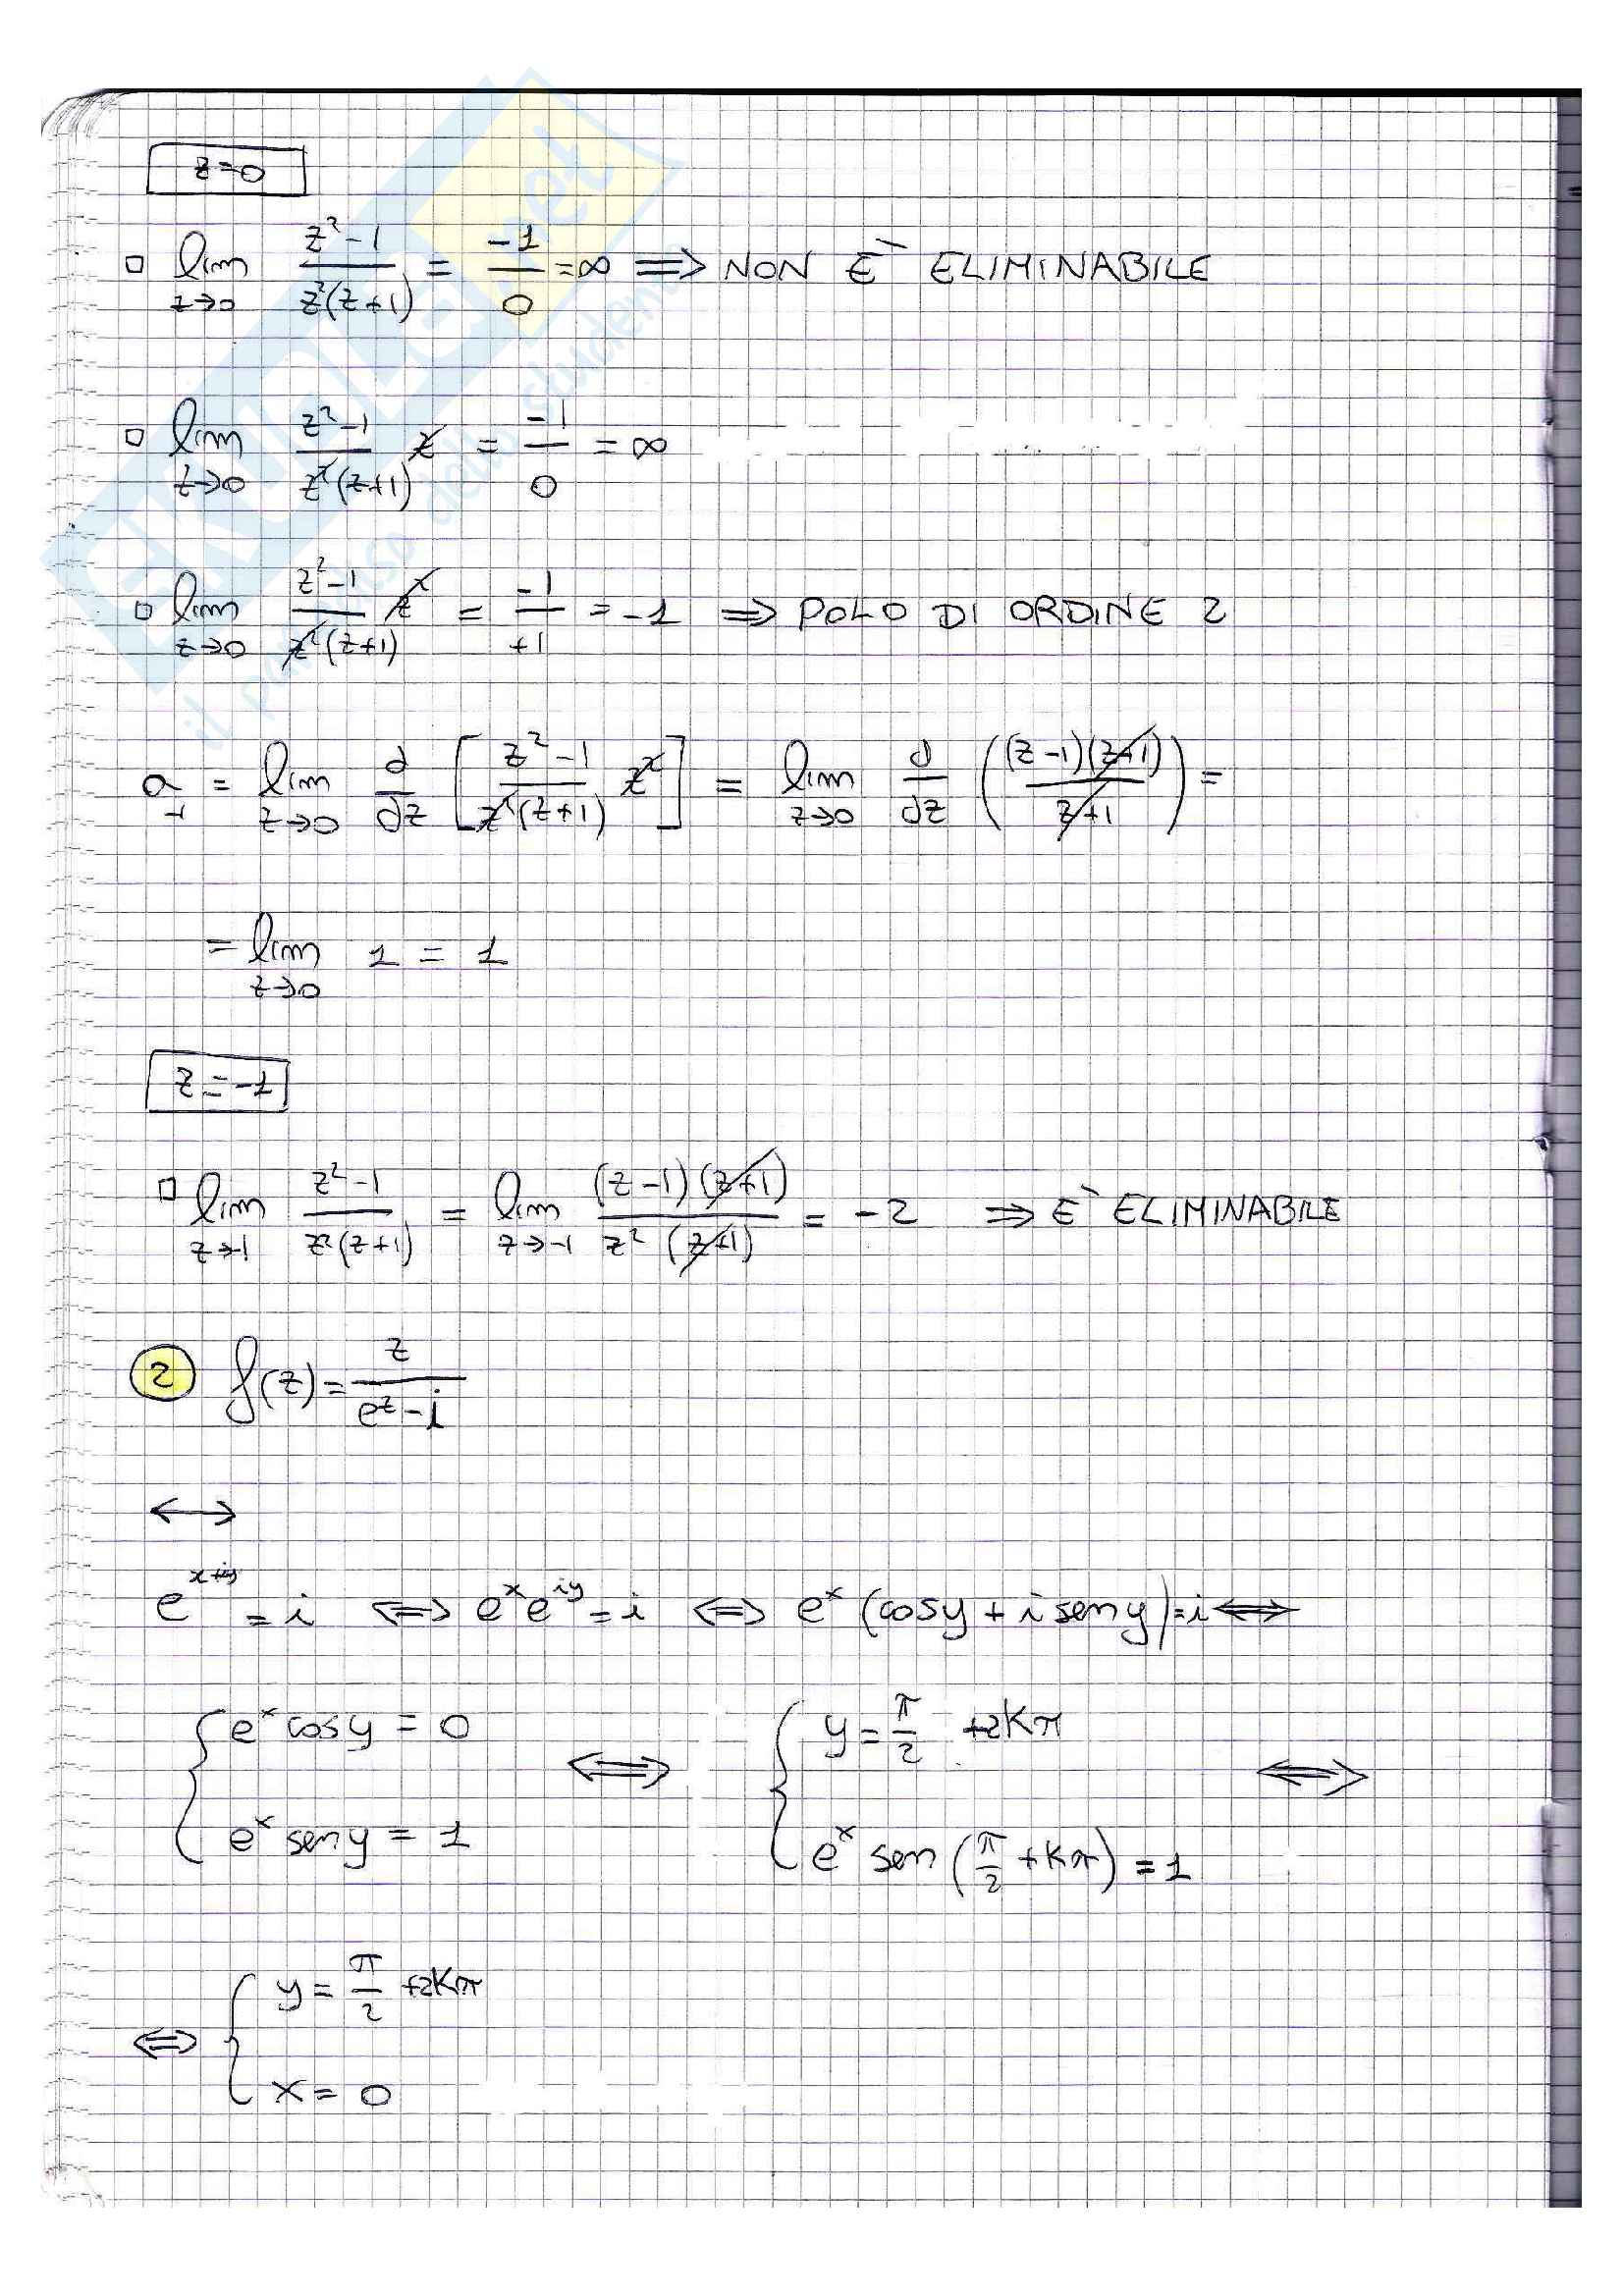 z=0
▫ lim_{z→0} (z²-1)/(z²(z+1)) = -1/0 = ∞ ⟹ NON E` ELIMINABILE
▫ lim_{z→0} (z²-1)/(z²(z+1)) z = -1/0 = ∞
▫ lim_{z→0} (z²-1)/(z²(z+1)) z² = -1/+1 = -1 ⟹ POLO DI ORDINE 2
a_{-1} = lim_{z→0} d/dz [(z²-1)/(z²(z+1)) z²] = lim_{z→0} d/dz ((z-1)(z+1)/(z+1)) =
= lim_{z→0} 1 = 1
z=-1
▫ lim_{z→-1} (z²-1)/(z²(z+1)) = lim_{z→-1} (z-1)(z+1)/(z²(z+1)) = -2 ⟹ E` ELIMINABILE
2 f(z) = z/(e^z - i)
↔
e^{x+iy} = i ⟺ e^x e^{iy} = i ⟺ e^x (cosy + i seny) = i ⟺
{ e^x cosy = 0 ⟺ { y = π/2 +2Kπ ⟺
e^x seny = 1 e^x sen(π/2 + Kπ) = 1
⟺ { y = π/2 +2Kπ
x = 0
SKUOLA.net
il paradiso dello studente